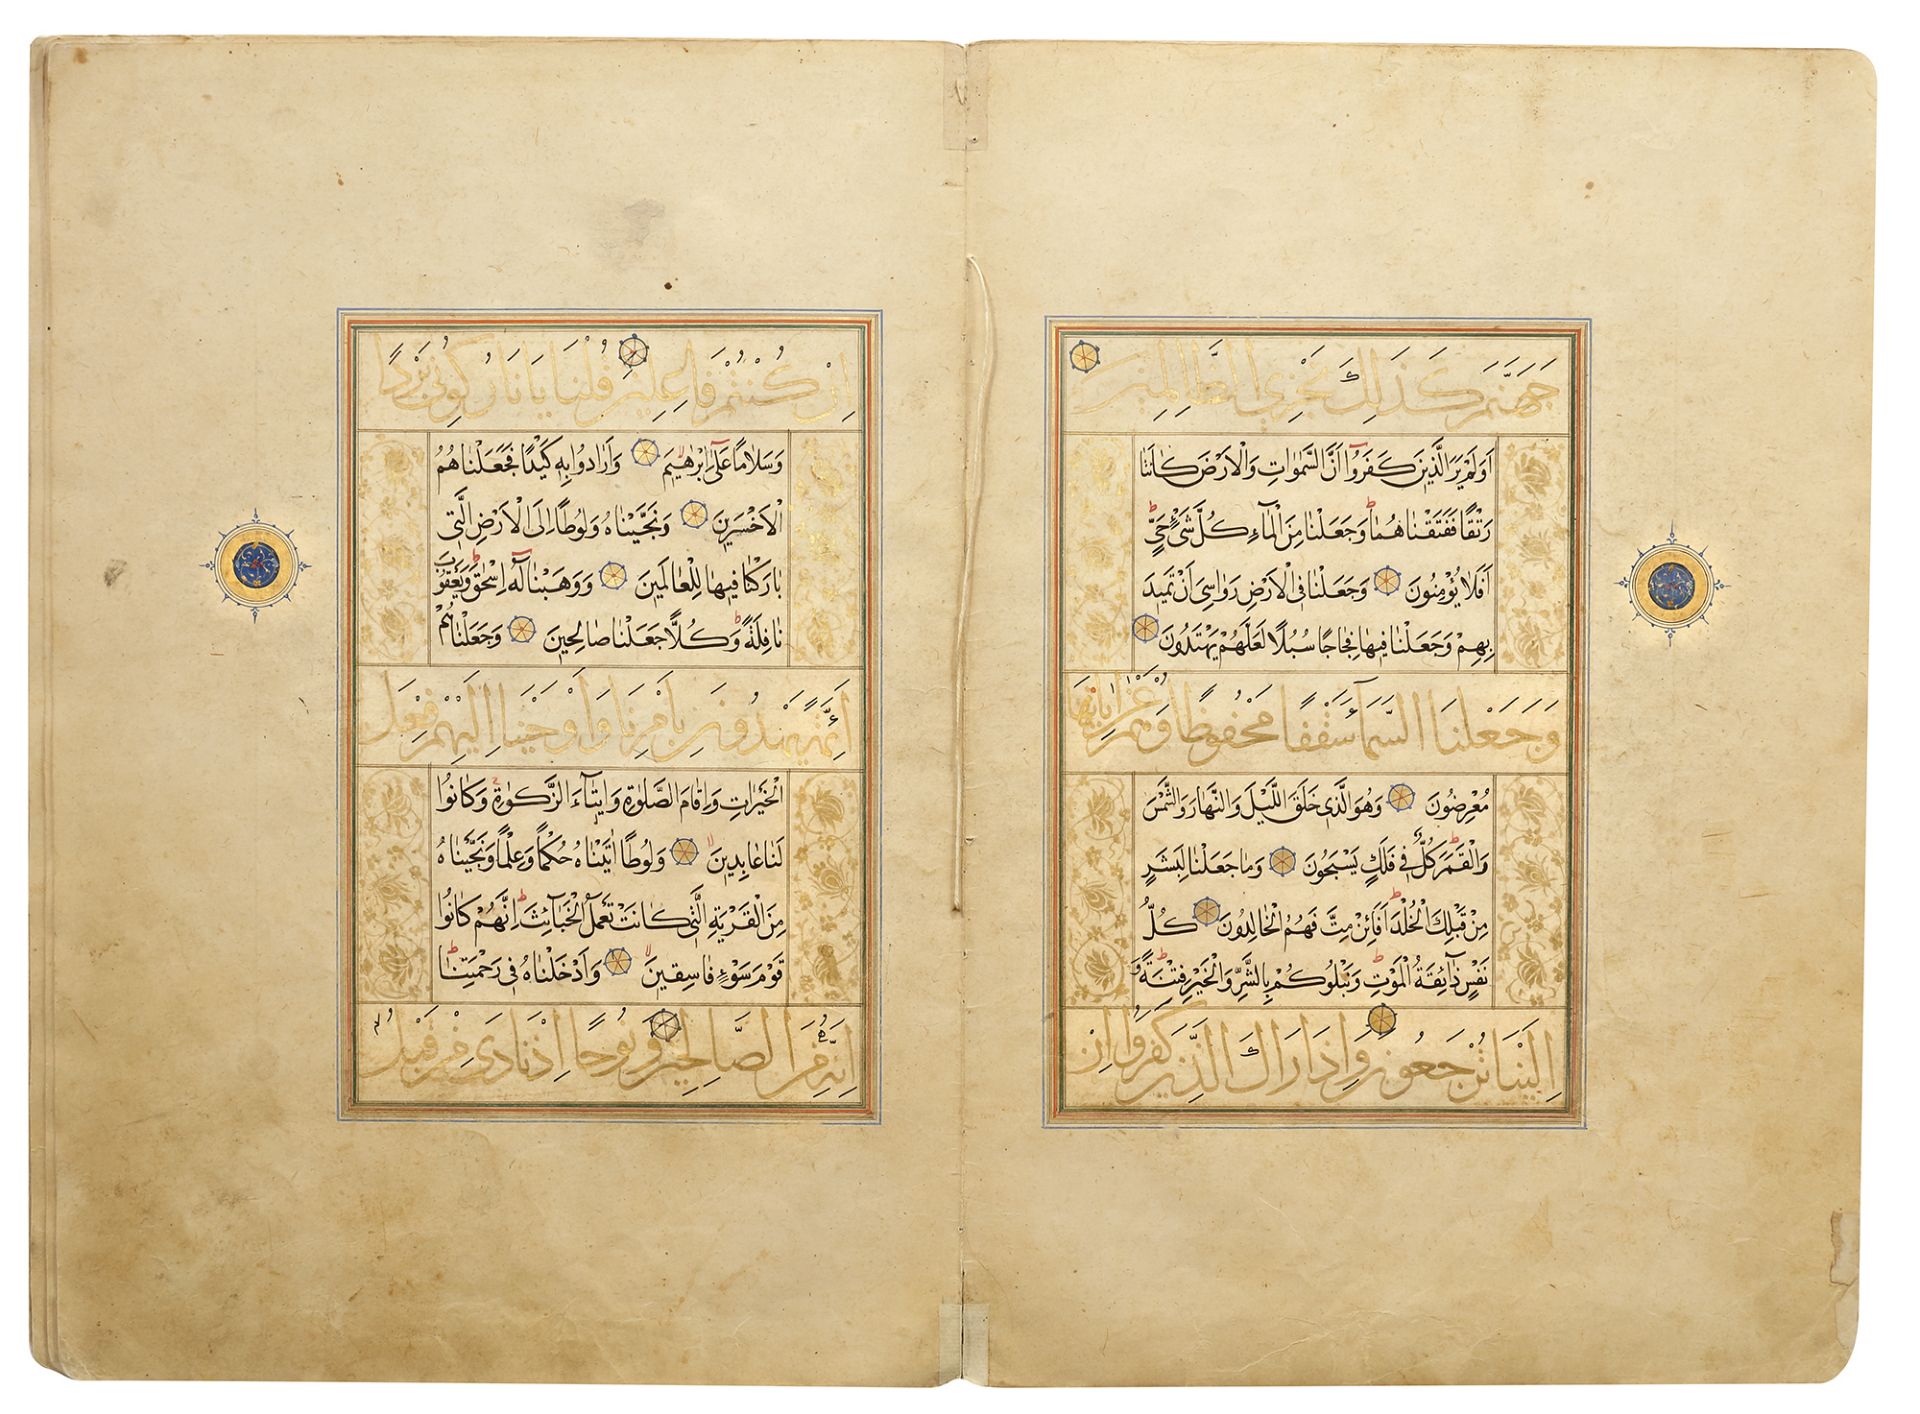 جَهَنَّمَ كَذَلِكَ نَجْزِي الظَّالِمِينَ
اَوَلَمْ يَرَ الَّذِينَ كَفَرُوا اَنَّ السَّمٰوَاتِ وَالْاَرْضَ كَانَتَا
رَتْقًا فَفَتَقْنَاهُمَا وَجَعَلْنَا مِنَ الْمَاءِ كُلَّ شَيْءٍ حَيٍّ
اَفَلَا يُؤْمِنُونَ وَجَعَلْنَا فِي الْاَرْضِ رَوَاسِيَ اَنْ تَمِيدَ
بِهِمْ وَجَعَلْنَا فِيهَا فِجَاجًا سُبُلًا لَعَلَّهُمْ يَهْتَدُونَ
وَجَعَلْنَا السَّمَآءَ سَقْفًا مَحْفُوظًا وَهُمْ عَنْ اٰيَاتِهَا
مُعْرِضُونَ وَهُوَ الَّذِي خَلَقَ اللَّيْلَ وَالنَّهَارَ وَالشَّمْسَ
وَالْقَمَرَ كُلٌّ فِي فَلَكٍ يَسْبَحُونَ وَمَا جَعَلْنَا لِبَشَرٍ
مِنْ قَبْلِكَ الْخُلْدَ اَفَاِئِنْ مِتَّ فَهُمُ الْخَالِدُونَ كُلُّ
نَفْسٍ ذَآئِقَةُ الْمَوْتِ وَنَبْلُوكُمْ بِالشَّرِّ وَالْخَيْرِ فِتْنَةً وَ
اِلَيْنَا تُرْجَعُونَ وَاِذَا رَاٰكَ الَّذِينَ كَفَرُوا اِنْ
اِنْ كُنْتُمْ فَاعِلِينَ قُلْنَا يَا نَارُ كُونِي بَرْدًا
وَسَلَامًا عَلٰٓى اِبْرٰهِيمَ وَاَرَادُوا بِهِ كَيْدًا فَجَعَلْنَاهُمُ
الْاَخْسَرِينَ وَنَجَّيْنَاهُ وَلُوطًا اِلَى الْاَرْضِ الَّتِي
بَارَكْنَا فِيهَا لِلْعَالَمِينَ وَوَهَبْنَا لَهُٓ اِسْحٰقَ وَيَعْقُوبَ
نَافِلَةً وَكُلًّا جَعَلْنَا صَالِحِينَ وَجَعَلْنَاهُمْ
اَئِمَّةً يَهْدُونَ بِاَمْرِنَا وَاَوْحَيْنَا اِلَيْهِمْ فِعْلَ
الْخَيْرَاتِ وَاِقَامَ الصَّلٰوةِ وَاِيتَآءَ الزَّكٰوةِ وَكَانُوا
لَنَا عَابِدِينَ وَلُوطًا اٰتَيْنَاهُ حُكْمًا وَعِلْمًا وَنَجَّيْنَاهُ
مِنَ الْقَرْيَةِ الَّتِي كَانَتْ تَعْمَلُ الْخَبَآئِثَ اِنَّهُمْ كَانُوا
قَوْمَ سَوْءٍ فَاسِقِينَ وَاَدْخَلْنَاهُ فِي رَحْمَتِنَا
اِنَّهُ مِنَ الصَّالِحِينَ وَنُوحًا اِذْ نَادَى مِنْ قَبْلُ